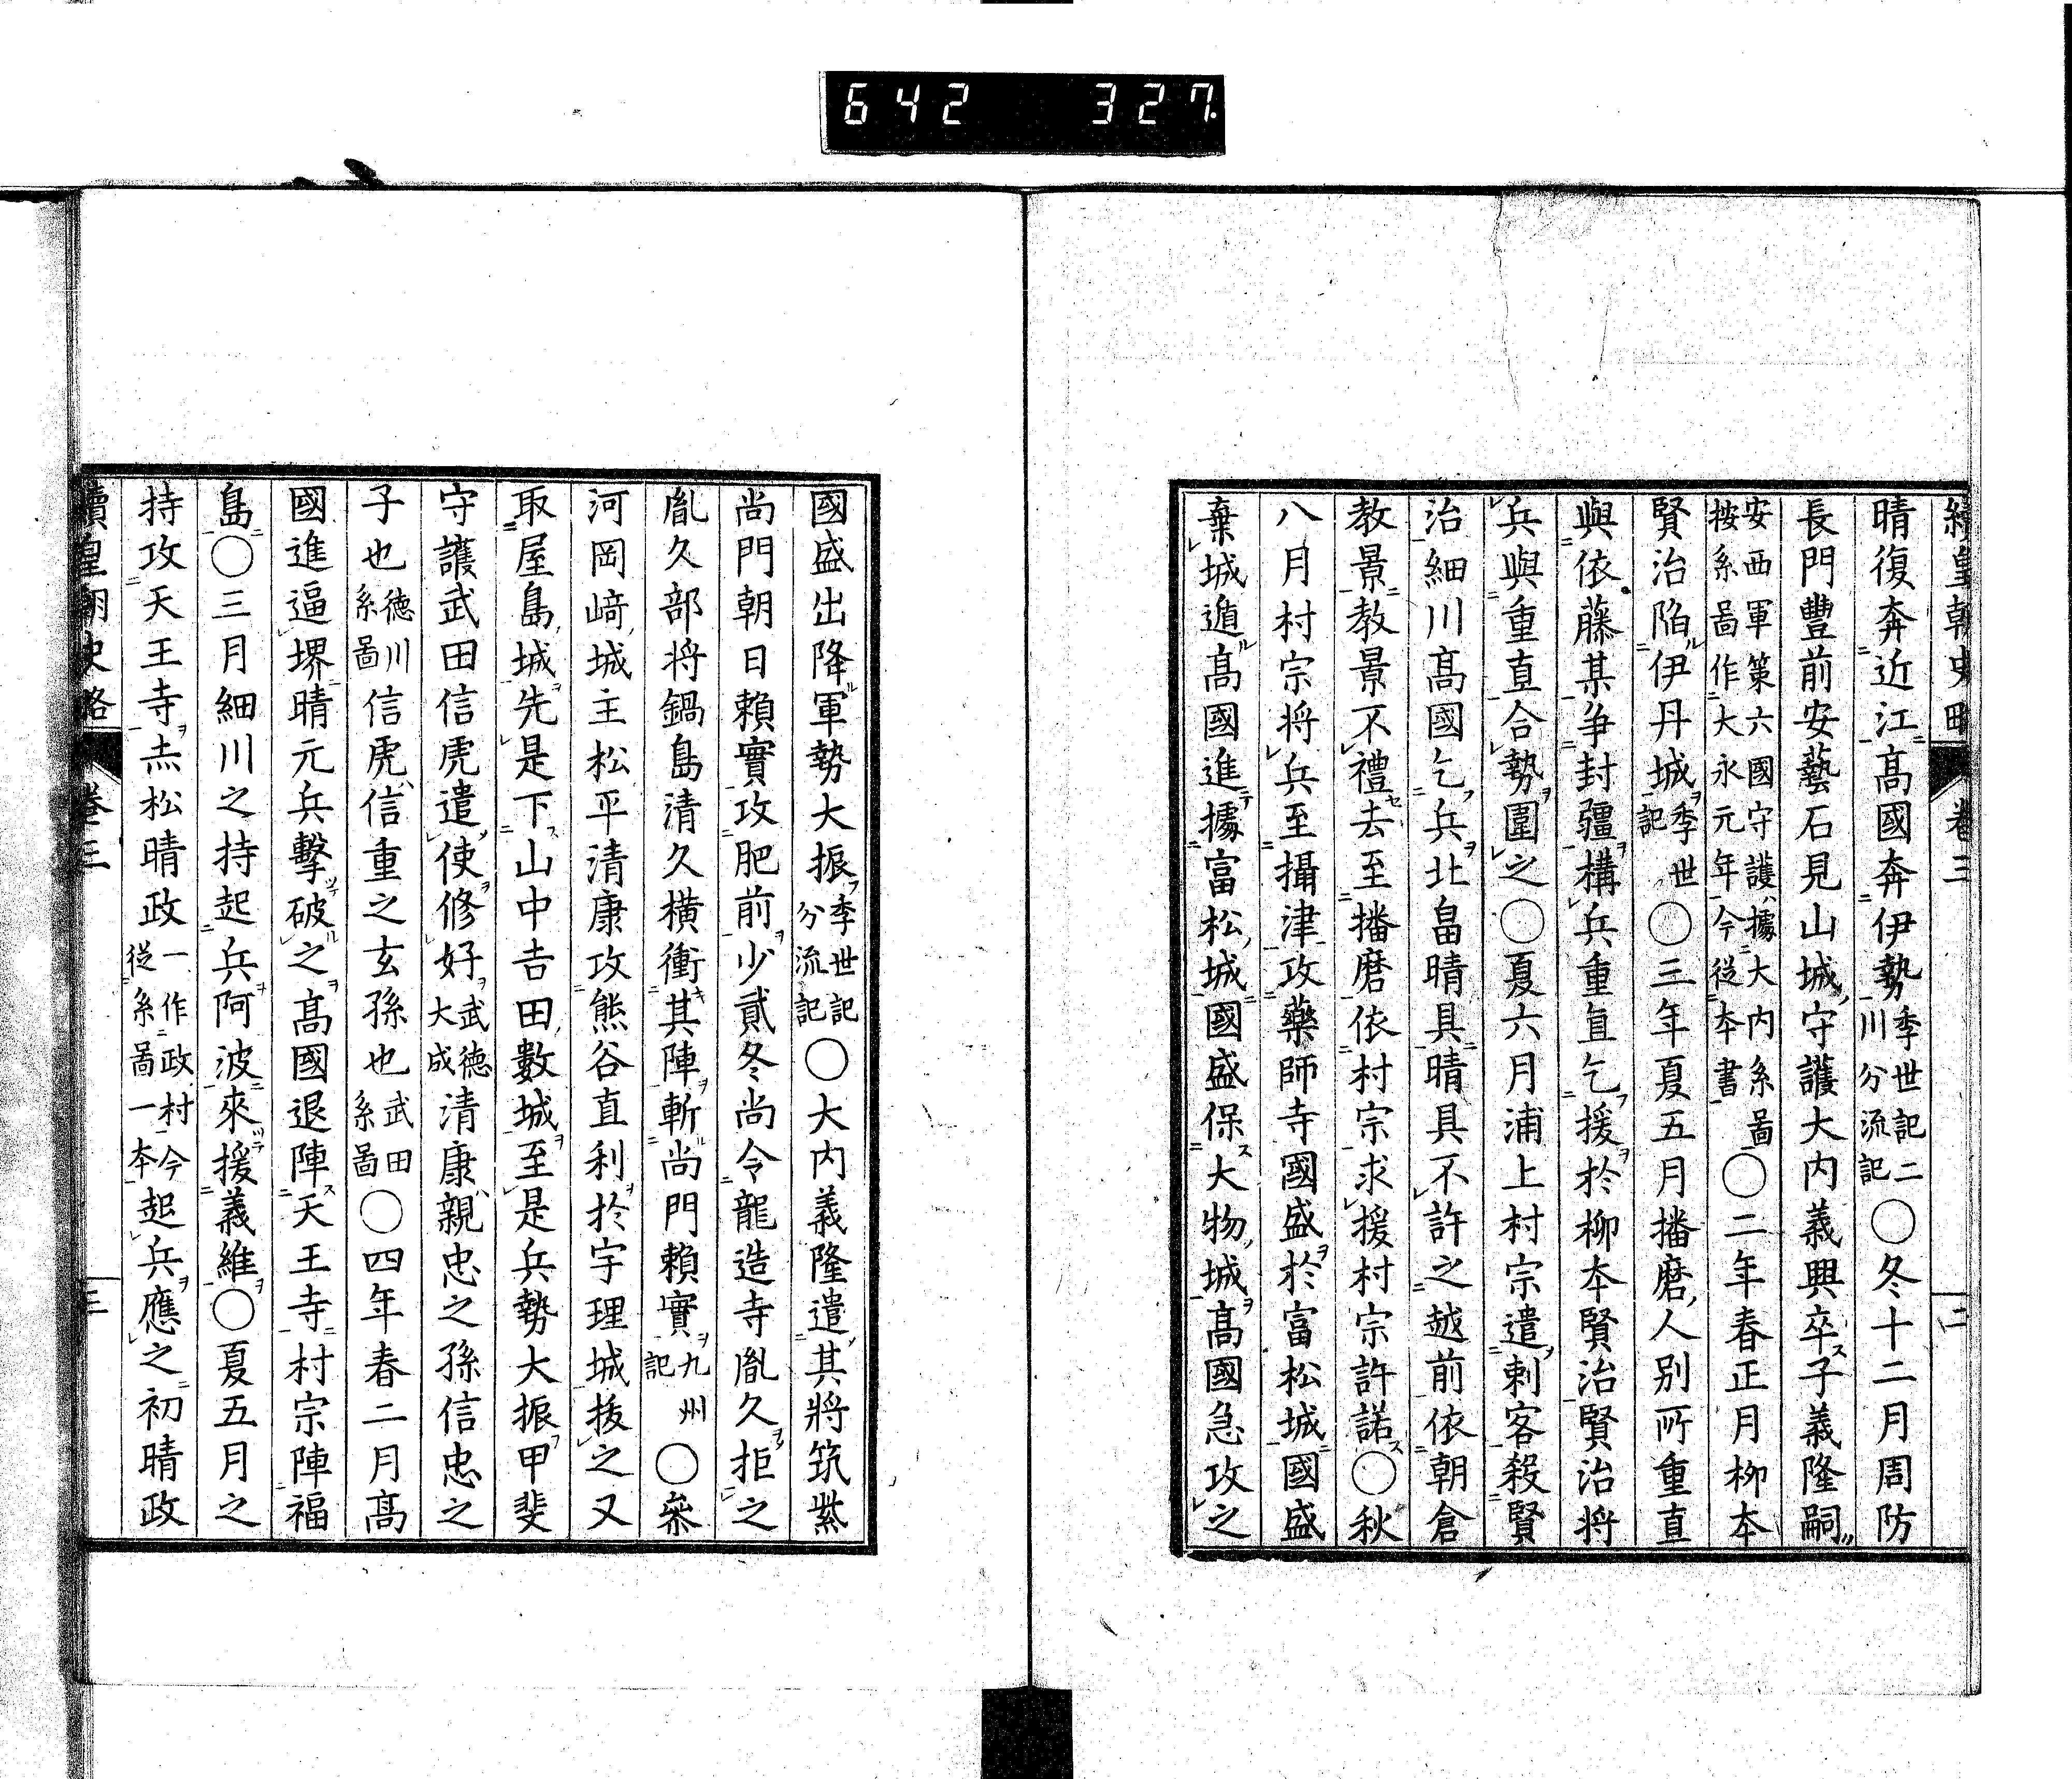 642 327.
續皇朝史略 卷三 二
晴復奔近江高國奔伊勢季世記二川分流記○冬十二月周防
長門豐前安藝石見山城守護大內義興卒子義隆嗣
安西軍策六國守護據大內系啚按系啚作大永元年今從本書○二年春正月柳本
賢治陷伊丹城季世記○三年夏五月播磨人別所重直
與依藤某争封疆構兵重直乞援於柳本賢治賢治将
兵與重直合勢圍之○夏六月浦上村宗遣刺客殺賢
治細川高國乞兵北畠晴具晴具不許之越前依朝倉
教景教景不禮去至播磨依村宗求援村宗許諾○秋
八月村宗将兵至攝津攻藥師寺國盛於富松城國盛
棄城遁高國進據富松城國盛保大物城高國急攻之
國盛出降軍勢大振季世記分流記○大内義隆遣其將筑紫
尚門朝日賴實攻肥前少貳冬尚令龍造寺胤久拒之
胤久部将鍋島清久横衝其陣斬尚門賴實九州記○叅
河岡﨑城主松平清康攻熊谷直利於宇理城拔之又
取屋島城先是下山中吉田數城至是兵勢大振甲斐
守護武田信虎遣使修好武德大成清康親忠之孫信忠之
子也德川系啚信虎信重之玄孫也武田系啚○四年春二月高
國進逼堺晴元兵擊破之高國退陣天王寺村宗陣福
島○三月細川之持起兵阿波來援義維○夏五月之
持攻天王寺赤松晴政一作政村今從系啚一本起兵應之初晴政
續皇朝史略 卷三 三